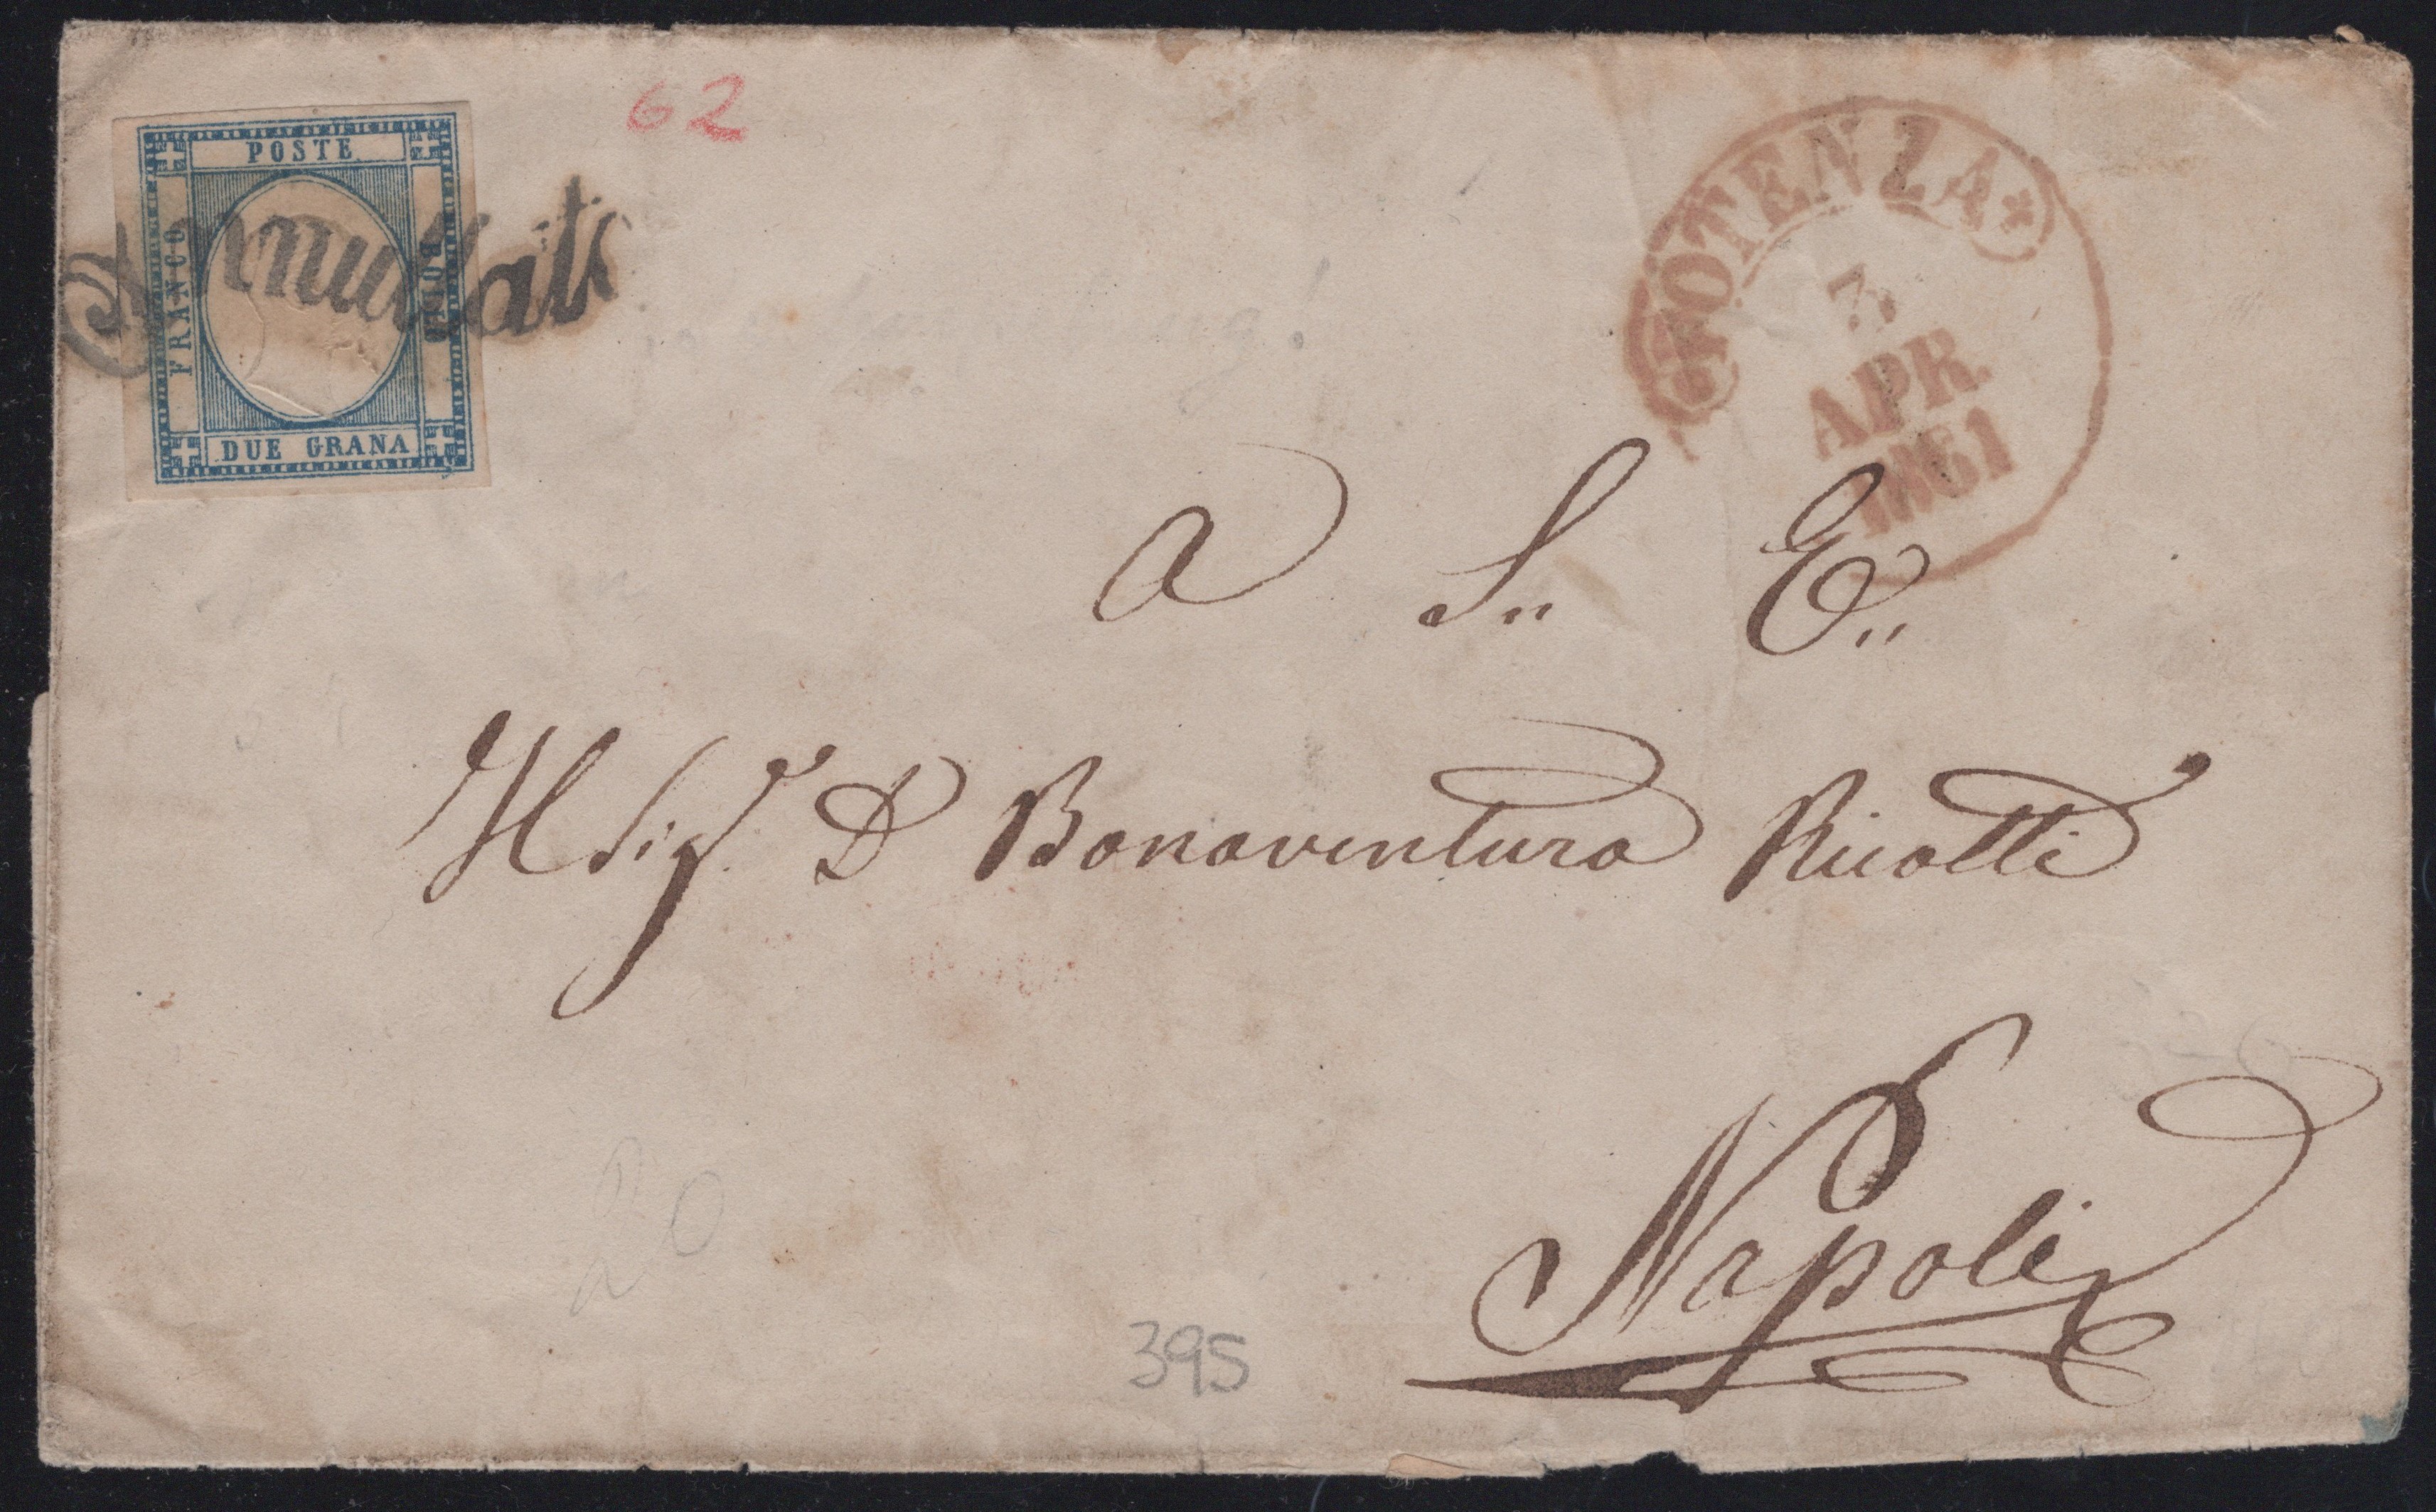 62
POSTE
FRANCO
BOLLO
DUE GRANA
Annullato
POTENZA
3
APR.
1861
A S. E.
Il Sigr. D Bonaventura Ricotti
Napoli
20
395